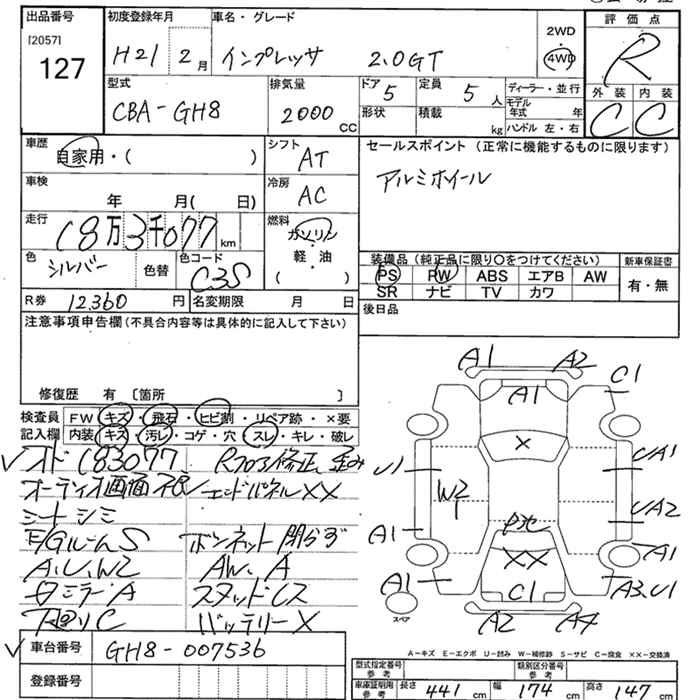 出品番号 初度登録年月 車名・グレード 2WD 評価点
[2057]
127 H21 2月 インプレッサ 2.0GT 4WD R
型式 排気量 ドア 5 定員 5人 ディーラー・並行 外装 内装
CBA-GH8 2000cc 形状 積載 kg モデル年式 年 C C
ハンドル 左・右
車歴 自家用・( ) シフト AT セールスポイント (正常に機能するものに限ります)
アルミホイール
車検 年 月( 日) 冷房 AC
走行 18万3千077km 燃料 ガソリン
軽・油
( )
色 シルバー 色替 色コード C3S
装備品(純正品に限り○をつけてください) 新車保証書
PS PW ABS エアB AW 有・無
SR ナビ TV カワ
R券 12,360円 名変期限 月 日 後日品
注意事項申告欄(不具合内容等は具体的に記入して下さい)
修復歴 有 [箇所 ]
検査員 FW キズ・飛石・ヒビ割・リペア跡・×要
記入欄 内装 キズ・汚レ・コゲ・穴・スレ・キレ・破レ
オド183077、 Rフロア修正、歪み
オーディオ画面不良 エンドパネルXX
シートシミ
ボンネット開らず
A.U.W2 AW.A
ミラーA スタッドレス
下廻りC バッテリーX
車台番号 GH8-007536
登録番号
A1 A2 C1
A1
X
U1 UA1
W2
1
UA2
A1 A1
XX
A1 C1 A3.U1
スペア
A2 A4
A-キズ E-エクボ U-凹み W-補修跡 S-サビ C-腐食 ××-交換済
型式指定番号 参考 類別区分番号 参考
車庫証明用 参考 長さ 441cm 幅 174cm 高さ 147cm